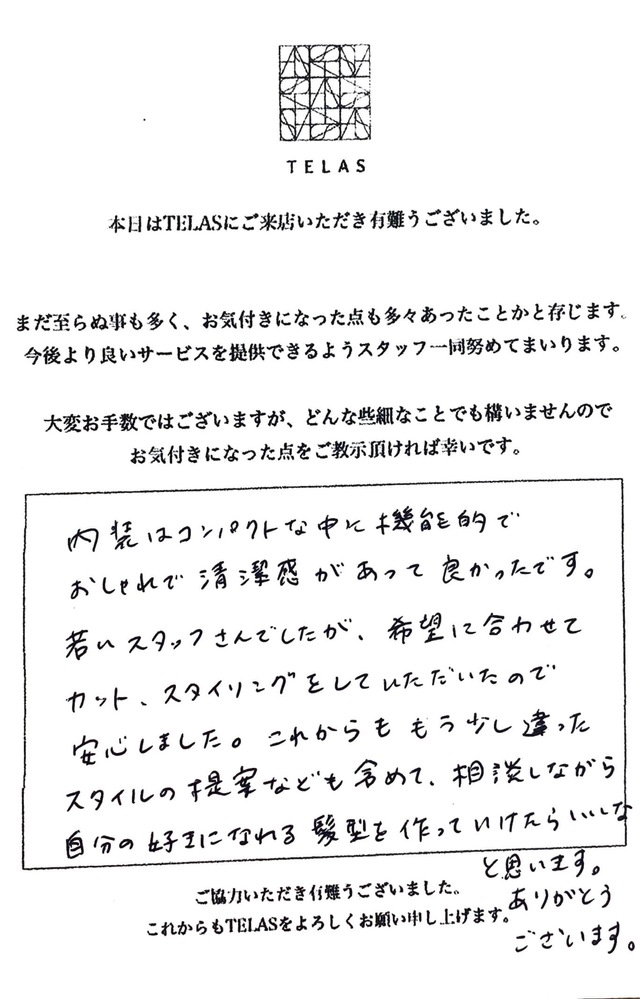 TELAS
本日はTELASにご来店いただき有難うございました。
まだ至らぬ事も多く、お気付きになった点も多々あったことかと存じます。
今後より良いサービスを提供できるようスタッフ一同努めてまいります。
大変お手数ではございますが、どんな些細なことでも構いませんので
お気付きになった点をご教示頂ければ幸いです。
内装はコンパクトな中に機能的で
おしゃれで清潔感があって良かったです。
若いスタッフさんでしたが、希望に合わせて
カット、スタイリングをしていただいたので
安心しました。これからももう少し違った
スタイルの提案なども含めて、相談しながら
自分の好きになれる髪型を作っていけたらいいな
と思います。
ありがとう
ございます。
ご協力いただき有難うございました。
これからもTELASをよろしくお願い申し上げます。